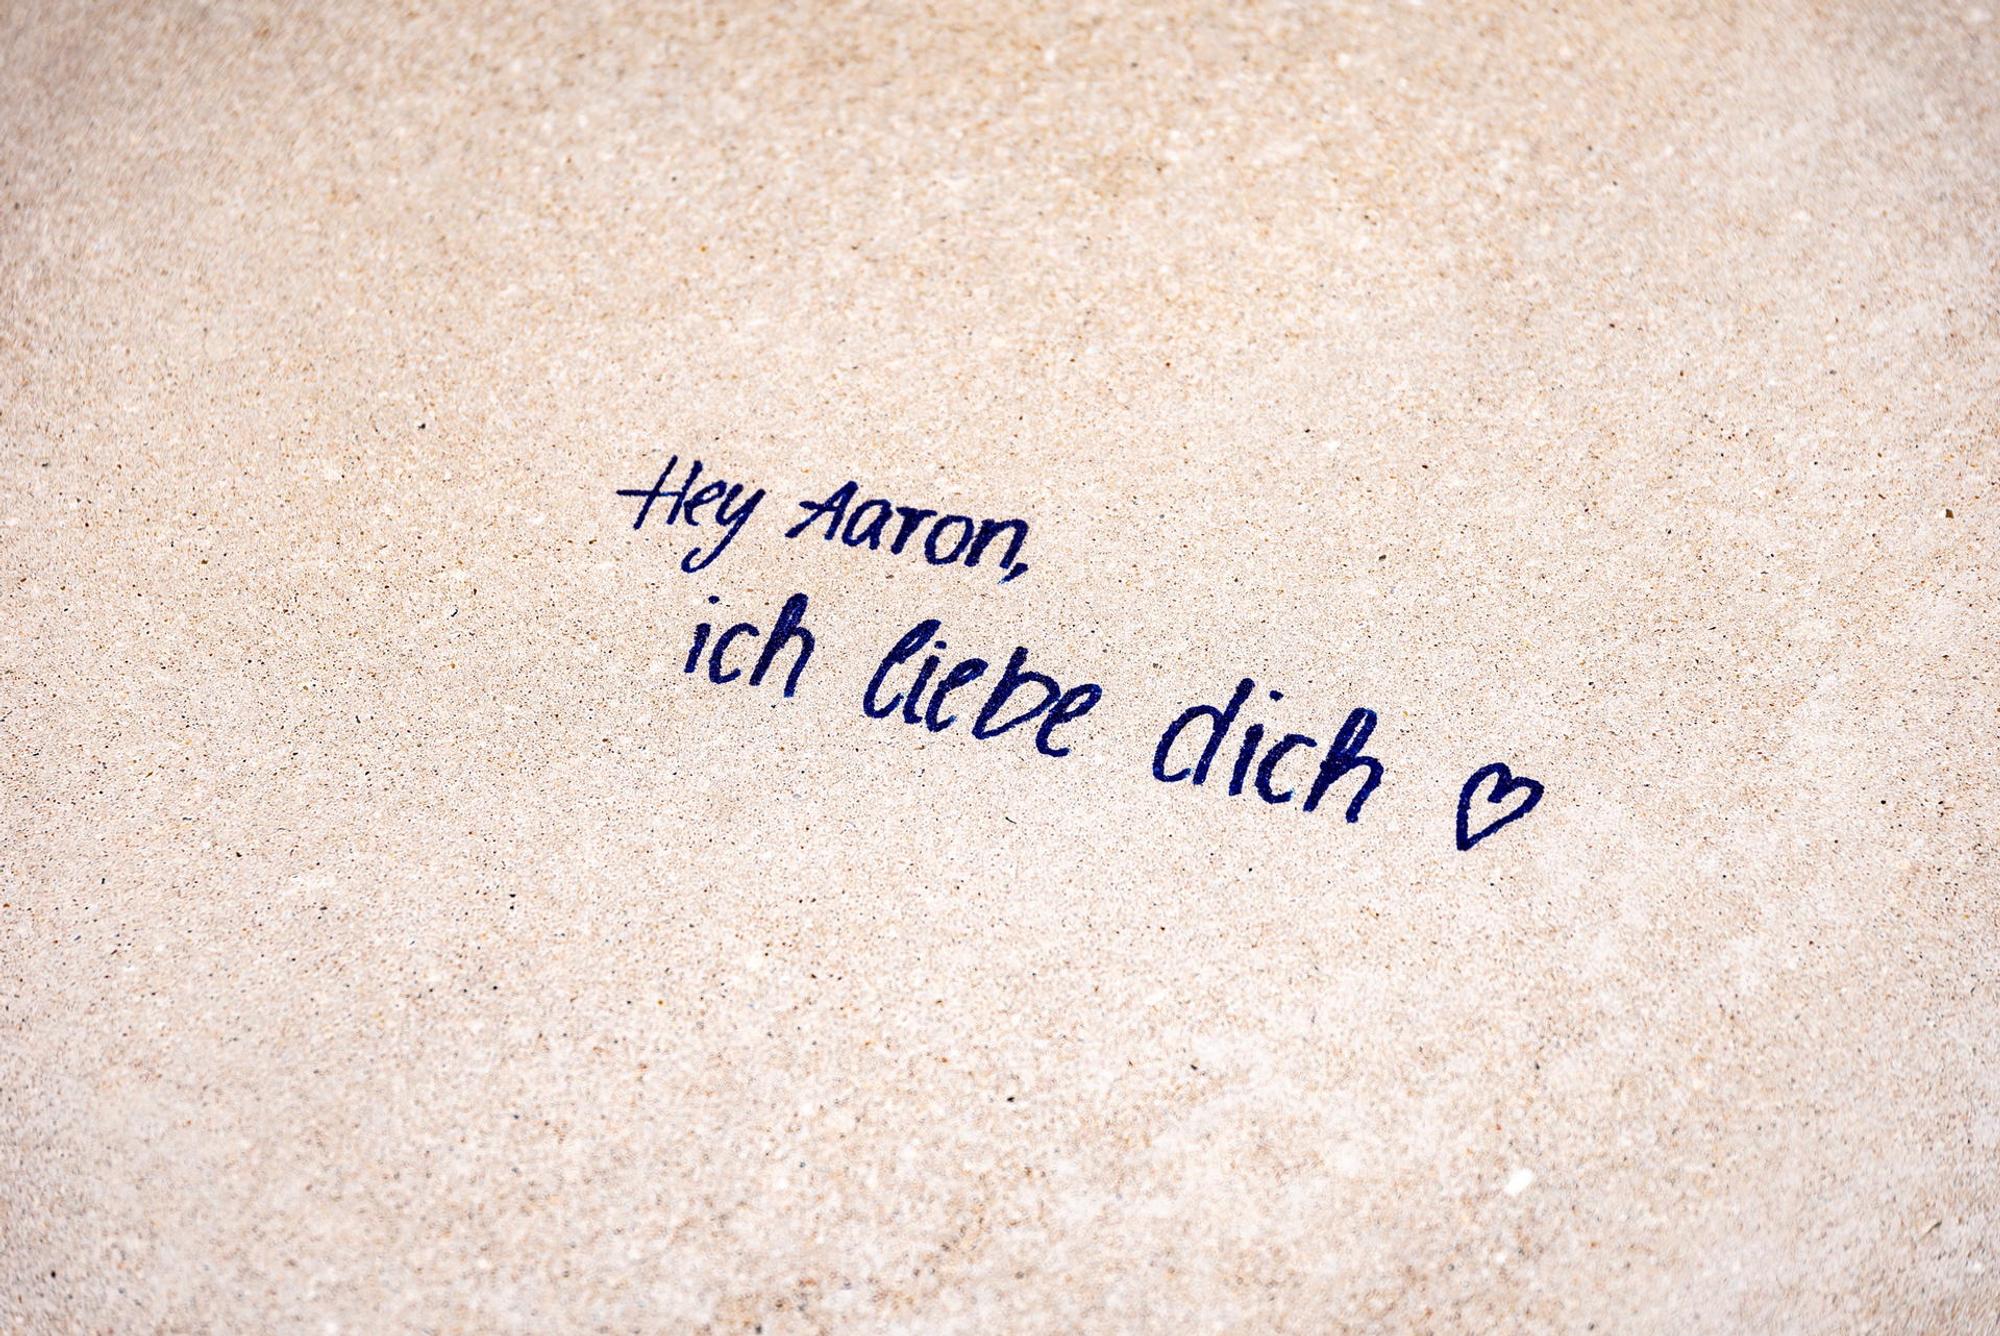 Hey Aaron,
ich liebe dich ♡